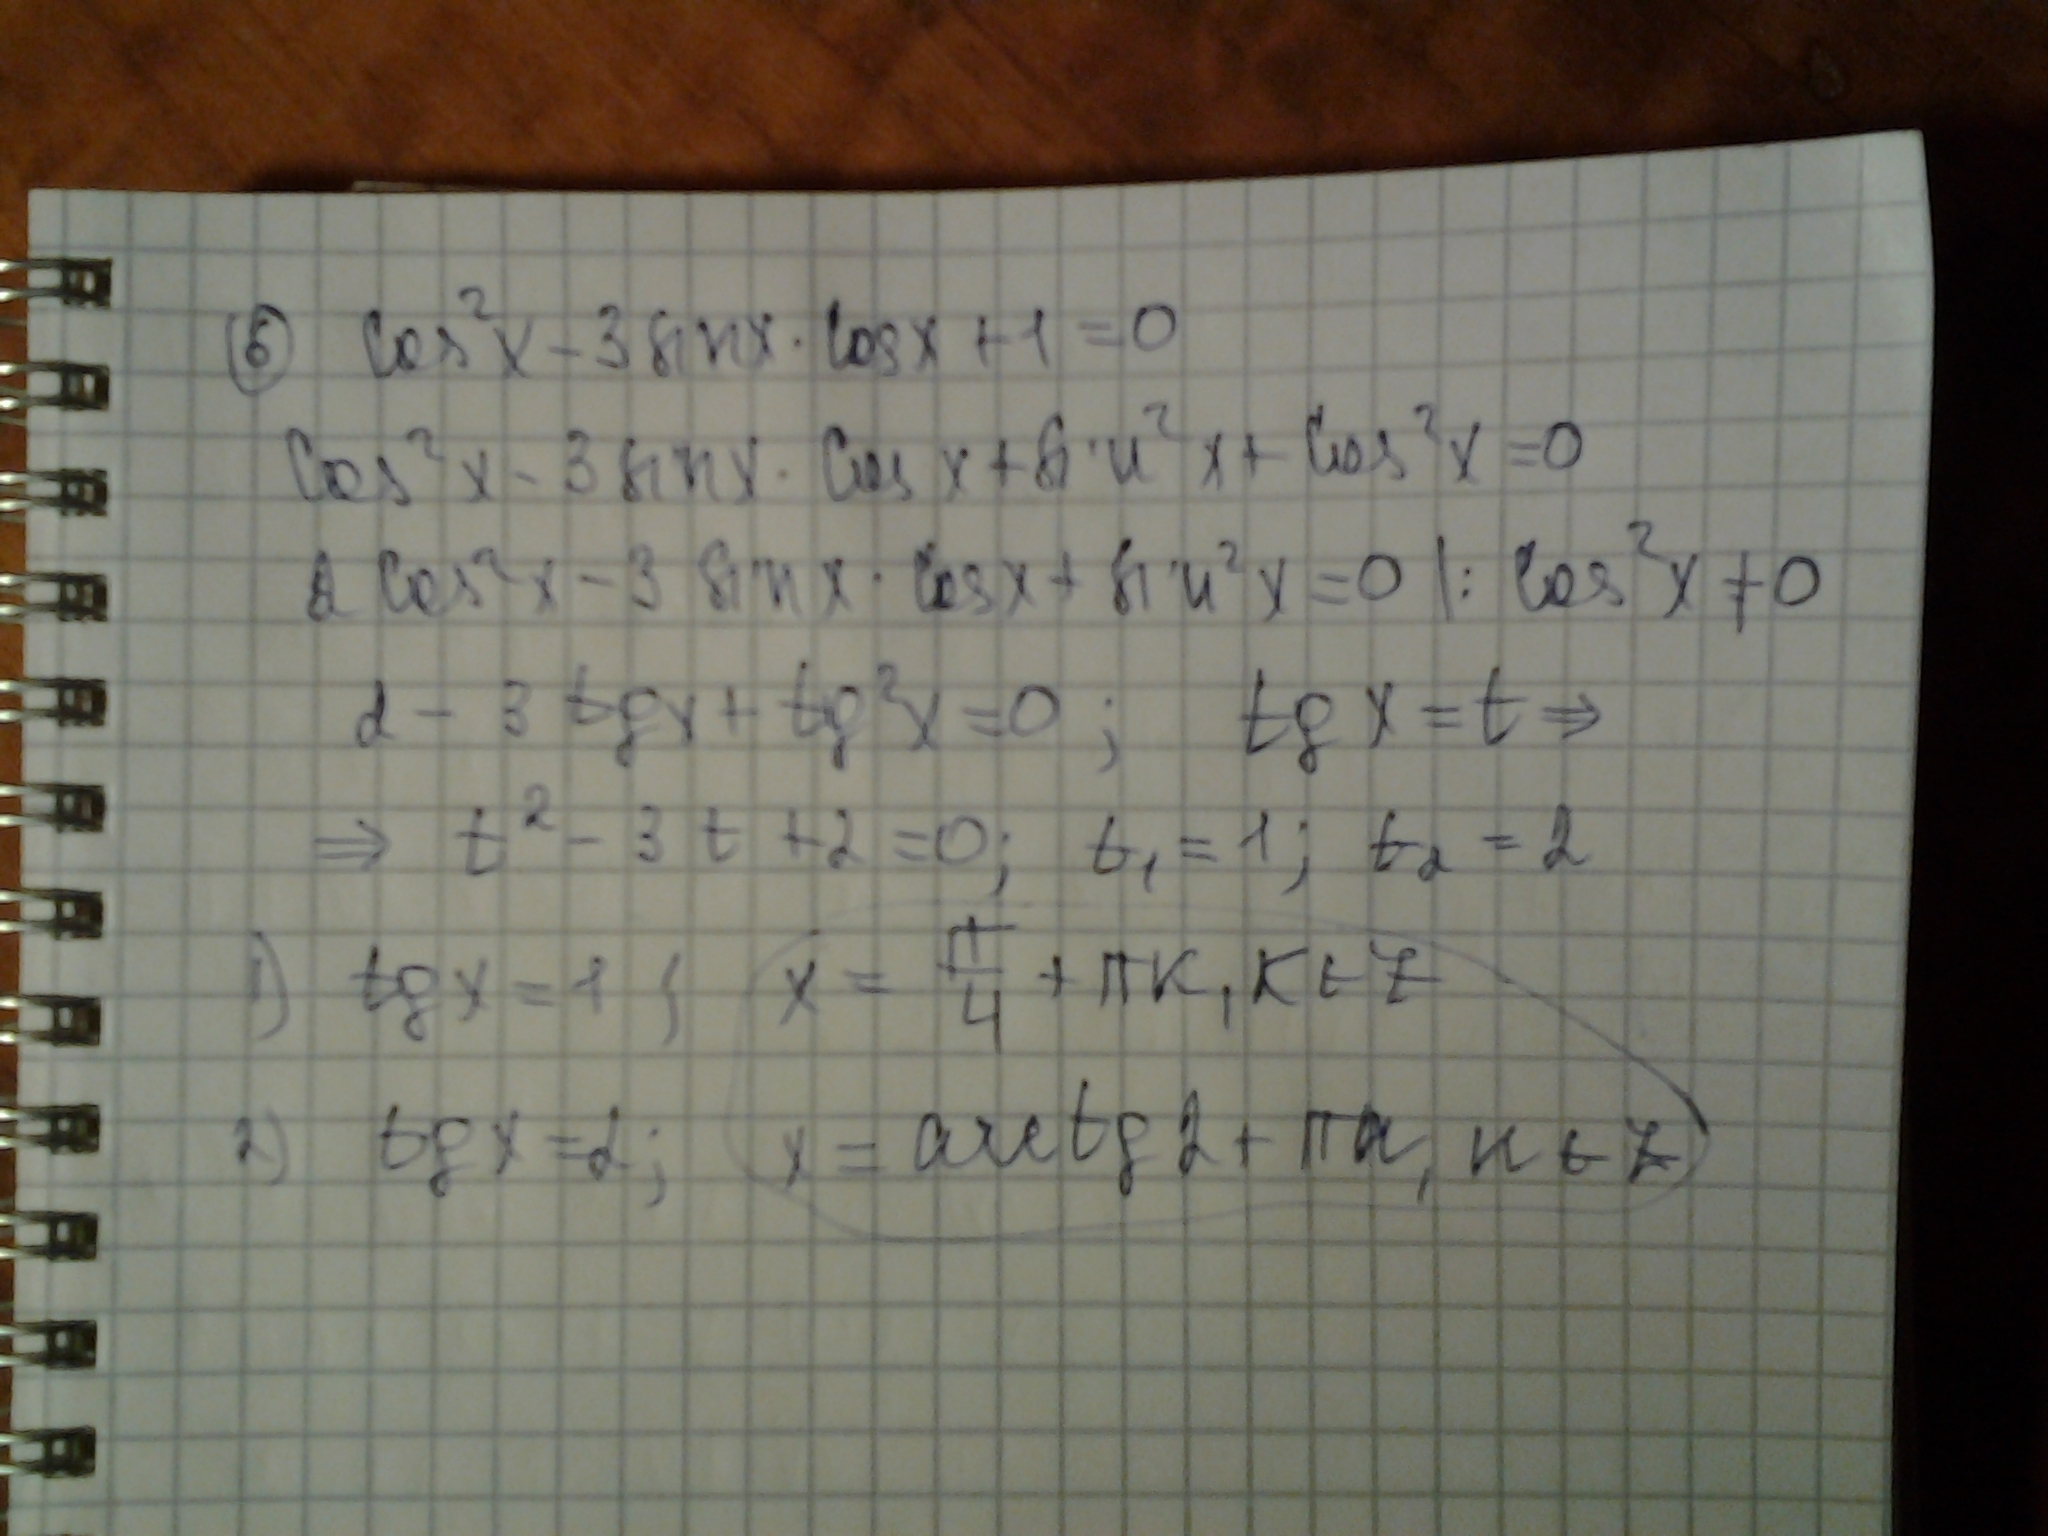 ⑥ cos²x - 3 sinx · cosx + 1 = 0
cos²x - 3 sinx · cos x + sin²x + cos²x = 0
2 cos²x - 3 sin x · cosx + sin²x = 0 |: cos²x ≠ 0
2 - 3 tgx + tg²x = 0 ; tg x = t ⇒
⇒ t² - 3 t + 2 = 0; t₁ = 1; t₂ = 2
1) tgx = 1 ; x = π/4 + πк, к ∈ Z
2) tg x = 2; x = arctg 2 + πn, n ∈ Z